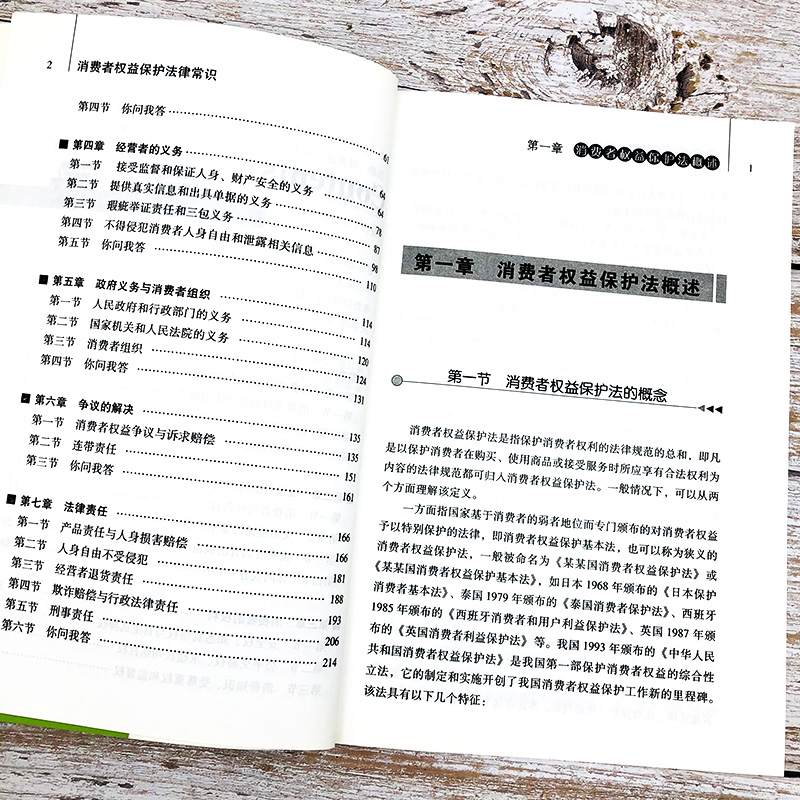 2 消费者权益保护法律常识
第四节 你问我答 61
■ 第四章 经营者的义务 64
第一节 接受监督和保证人身、财产安全的义务 64
第二节 提供真实信息和出具单据的义务 78
第三节 瑕疵举证责任和三包义务 87
第四节 不得侵犯消费者人身自由和泄露相关信息 98
第五节 你问我答 110
■ 第五章 政府义务与消费者组织 114
第一节 人民政府和行政部门的义务 114
第二节 国家机关和人民法院的义务 120
第三节 消费者组织 124
第四节 你问我答 131
■ 第六章 争议的解决 135
第一节 消费者权益争议与诉求赔偿 135
第二节 连带责任 151
第三节 你问我答 161
■ 第七章 法律责任 166
第一节 产品责任与人身损害赔偿 166
第二节 人身自由不受侵犯 181
第三节 经营者退货责任 188
第四节 欺诈赔偿与行政法律责任 193
第五节 刑事责任 206
第六节 你问我答 214
第一章 消费者权益保护法概述 1
第一章 消费者权益保护法概述
第一节 消费者权益保护法的概念
消费者权益保护法是指保护消费者权利的法律规范的总和，即凡
是以保护消费者在购买、使用商品或接受服务时所应享有合法权利为
内容的法律规范都可归入消费者权益保护法。一般情况下，可以从两
个方面理解该定义。
一方面指国家基于消费者的弱者地位而专门颁布的对消费者权益
予以特别保护的法律，即消费者权益保护基本法，也可以称为狭义的
消费者权益保护法，一般被命名为《某某国消费者权益保护法》或
《某某国消费者权益保护基本法》，如日本 1968 年颁布的《日本保护
消费者基本法》、泰国 1979 年颁布的《泰国消费者保护法》、西班牙
1985 年颁布的《西班牙消费者和用户利益保护法》、英国 1987 年颁
布的《英国消费者利益保护法》等。我国 1993 年颁布的《中华人民
共和国消费者权益保护法》是我国第一部保护消费者权益的综合性
立法，它的制定和实施开创了我国消费者权益保护工作新的里程碑。
该法具有以下几个特征：